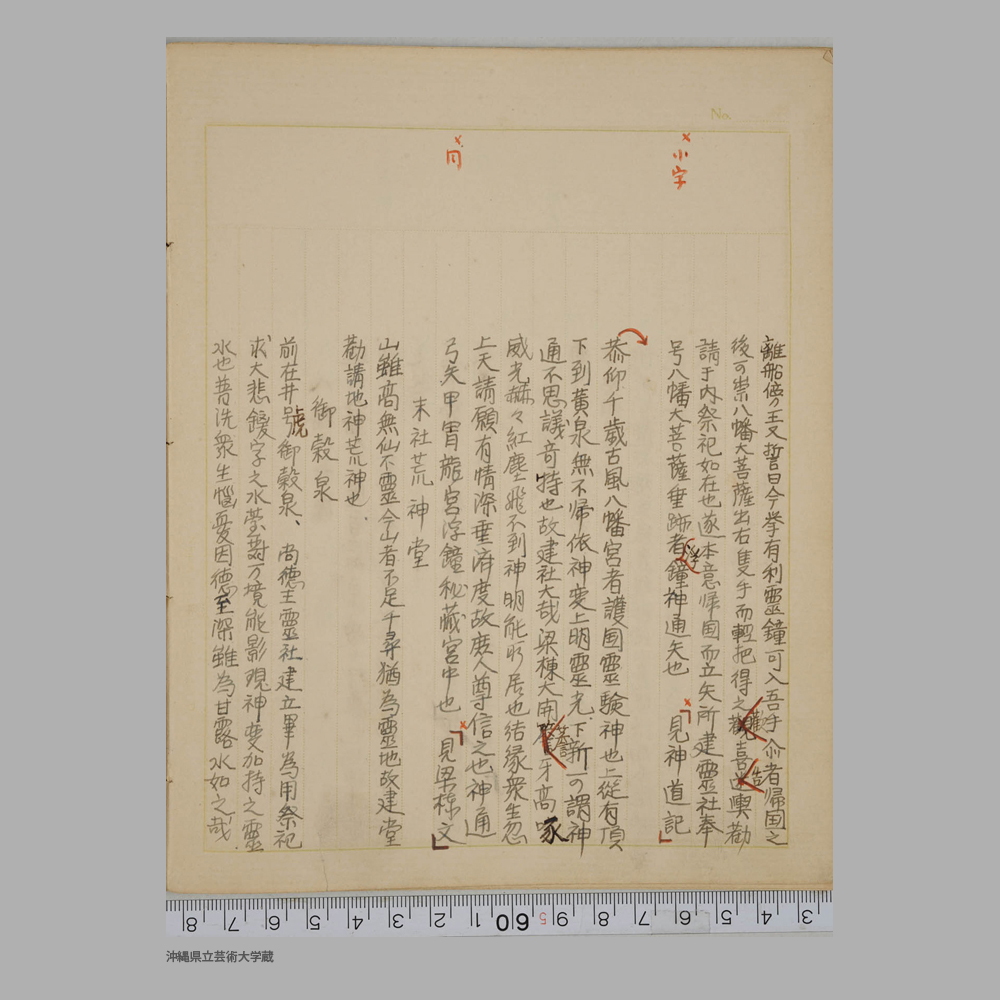 No.
小字
同
離船倍々王又誓曰今挙有利靈鐘可入吾手俞者帰国之
後可崇八幡大菩薩出右隻手而輕把得之歡喜興勸
請于内祭祀如在也遂本意帰国而立矢所建靈社奉
号八幡大菩薩垂跡者鐘神通矢也「見神道記」
恭仰千歳古風八幡宮者護国靈驗神也上從有頂
下到黄泉無不帰依神变上明靈光下新可謂神
通不思議竒特也故建社大哉梁棟大開牙高啄
威光赫々紅塵飛不到神明能所居也結緣衆生忽
上天請願有情深垂済度故度人尊信之也神通
弓矢甲冑龍宮浮鐘秘藏宮中也「見梁棟文」
末社荒神堂
山雖高無仙不靈今山者不足千尋猶為靈地故建堂
勸請地神荒神也.
御穀泉
前在井號御穀泉、尚德王靈社建立畢為用祭祀
求大悲鑁字之水瑩萬境能影現神变加持之靈
水也普洗衆生惱憂因德至深雖為甘露水如之哉.
8 7 6 5 4 3 2 1 60 5 9 8 7 6 5 4 3
沖縄県立芸術大学蔵